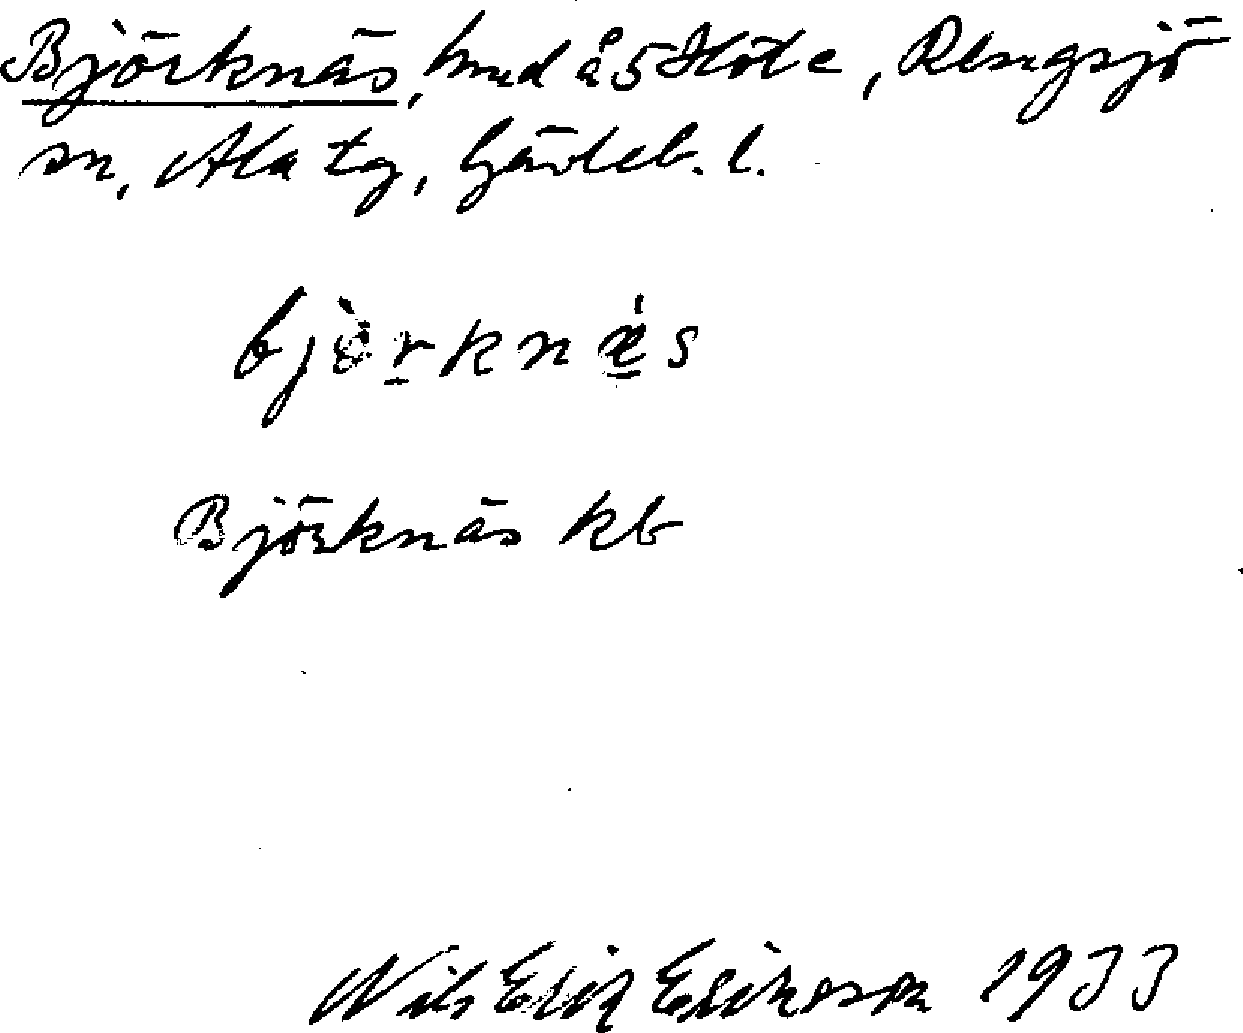 Björknäs, hmd å 5 Höle, Rengsjö
sn, Ala tg, Gävleb. l.
bjö̀rknä́s
Björknäs kb
Nils Erik Eriksson 1933